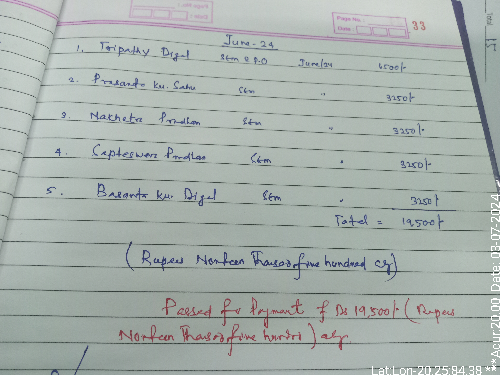 Page No.
Date
33
June-24
1. Tripathy Digal Stm & P.O June/24 6500/-
2. Prasanta Ku. Sahu Stm " 3250/-
3. Nakheta Pradhan Stm " 3250/-
4. Capteswar Pradhan Stm " 3250/-
5. Basanta Ku. Digal Stm " 3250/-
Total = 19,500/-
(Rupees Ninteen Thousand five hundred only)
Passed for Payment of Rs 19,500/- (Rupees
Ninteen Thousand five hundred) only
Lat Lon-20.25 84.38
***Acur 20.00 Date: 03-07-2024***